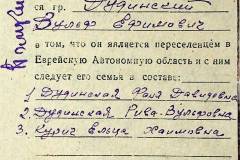 ся гр. Дудинский
Вульф Ефимович
в том, что он является переселенцем в
Еврейскую Автономную область и с ним
следует его семья в составе:
1 Дудинская Фаня Давидовна
2. Дудинская Рива-Вульфовна
3. Курич Ельца Хаимовна